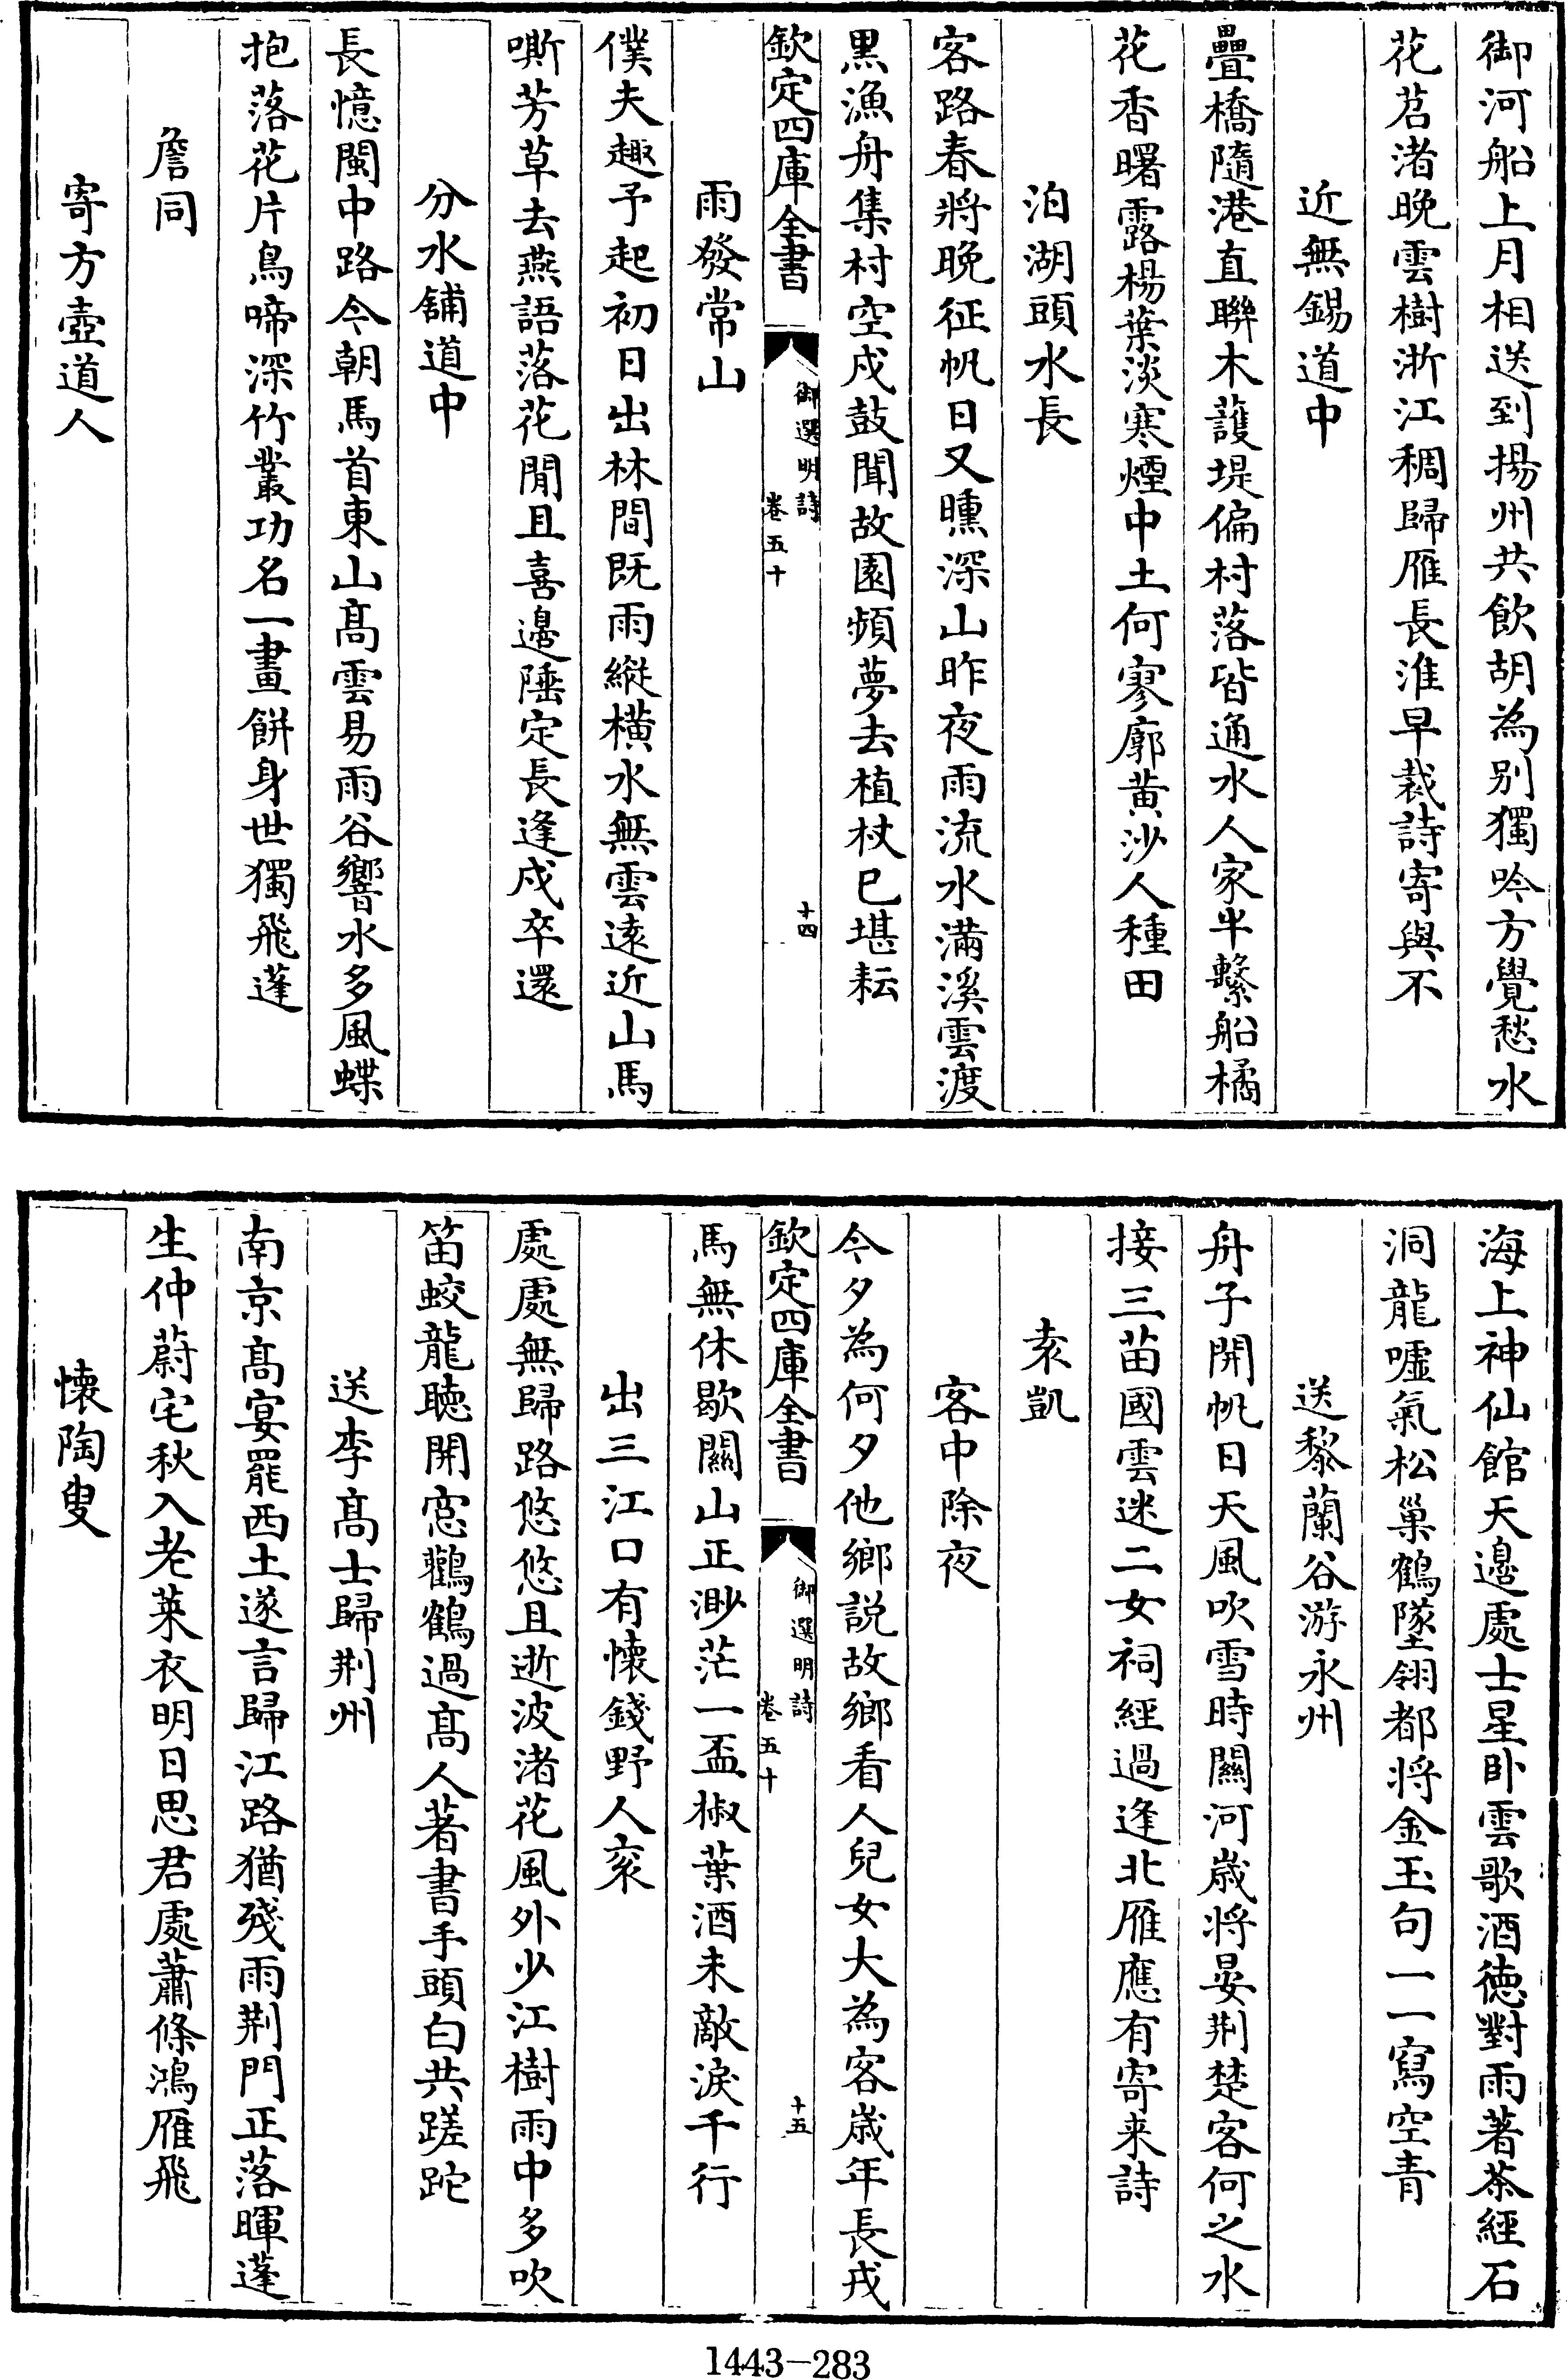 御河船上月相送到揚州共飲胡為别獨吟方覺愁水
花苕渚晩雲樹浙江稠歸雁長淮早裁詩寄與不
近無錫道中
疊橋隨港直聯木䕶堤偏村落皆通水人家半繫船橘
花香曙露楊葉淡寒煙中土何寥廓黄沙人種田
泊湖頭水長
客路春將晩征帆日又曛深山昨夜雨流水滿溪雲渡
黒漁舟集村空戍鼓聞故園頻夢去植杖已堪耘
欽定四庫全書
御選明詩
卷五十
十四
雨發常山
僕夫趣予起初日出林間既雨縱横水無雲逺近山馬
嘶芳草去燕語落花閒且喜邊陲定長逢戍卒還
分水舗道中
長憶閩中路今朝馬首東山髙雲易雨谷響水多風蝶
抱落花片鳥啼深竹叢功名一畫餅身世獨飛蓬
詹同
寄方壺道人
海上神仙館天邊處士星卧雲歌酒徳對雨著茶經石
洞龍嘘氣松巢鶴墜翎都将金玉句一一寫空青
送黎蘭谷游永州
舟子開帆日天風吹雪時關河歳將晏荆楚客何之水
接三苗國雲迷二女祠經過逢北雁應有寄来詩
袁凱
客中除夜
今夕為何夕他鄉説故鄉看人兒女大為客歳年長戎
欽定四庫全書
御選明詩
卷五十
十五
馬無休歇關山正渺茫一盃椒葉酒未敵淚千行
出三江口有懐錢野人衮
處處無歸路悠悠且逝波渚花風外少江樹雨中多吹
笛蛟龍聴開窓鸛鶴過髙人著書手頭白共蹉跎
送李髙士歸荆州
南京髙宴罷西土遂言歸江路猶殘雨荆門正落暉蓬
生仲蔚宅秋入老萊衣明日思君處蕭條鴻雁飛
懐陶叟
1443-283